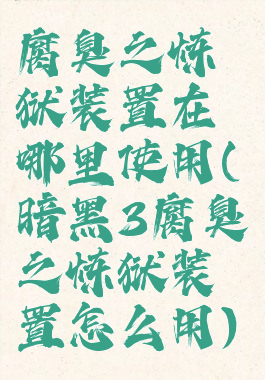 腐臭之炼
狱装置在
哪里使用(
暗黑3腐臭
之炼狱装
置怎么用)